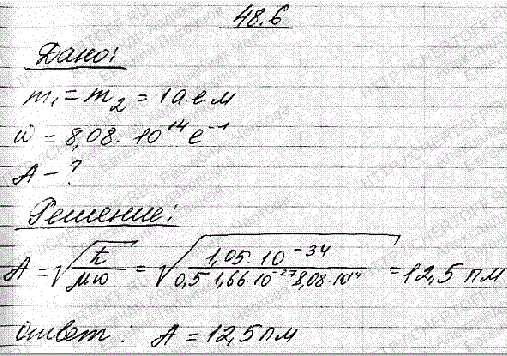 48.6
Дано:
m₁ = m₂ = 1 а е м
ω = 8,08 · 10¹⁴ с⁻¹
A - ?
Решение:
A = √(ħ/μω) = √(1,05 · 10⁻³⁴ / 0,5 · 1,66 · 10⁻²⁷ 8,08 · 10¹⁴) = 12,5 пм
ответ: A = 12,5 пм